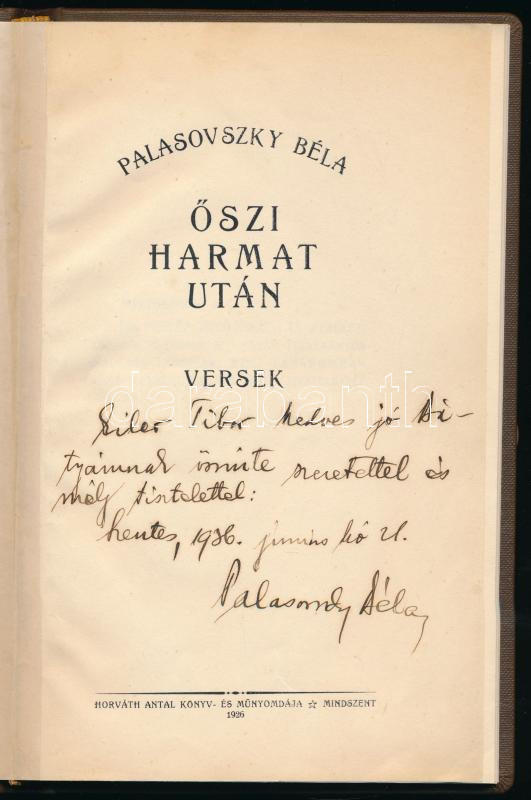 PALASOVSZKY BÉLA
ŐSZI
HARMAT
UTÁN
VERSEK
Tibor kedves jó Bá-
tyámnak őszinte szeretettel és
mély tisztelettel:
Szentes, 1936. június hó 21.
Palasovszky Béla
darabanth
HORVÁTH ANTAL KÖNYV- ÉS MŰNYOMDÁJA ☆ MINDSZENT
1926